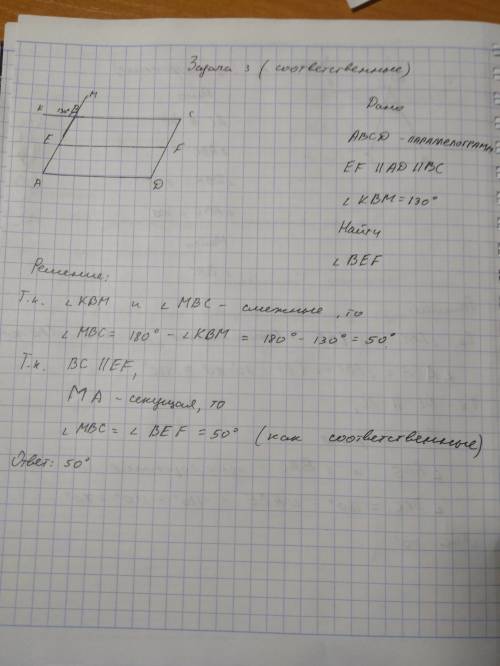 Задача 3 (соответственные)
M
K 130° B C
E F
A D
Дано
ABCD - ПАРАМЕЛОГРАММ
EF || AD || BC
∠ KBM = 130°
Найти
∠ BEF
Решение:
Т.к. ∠ KBM и ∠ MBC - смежные, то
∠ MBC = 180° - ∠ KBM = 180° - 130° = 50°
Т.к. BC || EF,
MA - секущая, то
∠ MBC = ∠ BEF = 50° (как соответственные)
Ответ: 50°